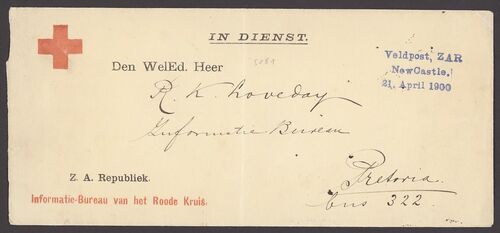 IN DIENST.
5081
Den WelEd. Heer
Veldpost, ZAR
NewCastle.
21. April 1900
R. K. Loveday
Informatie Bureau
Z. A. Republiek.
Pretoria.
Informatie-Bureau van het Roode Kruis.
Bus 322.